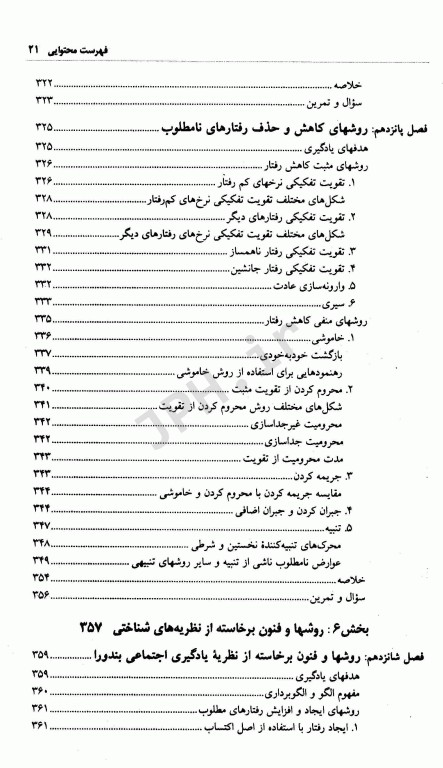 فهرست محتوایی ۲۱
خلاصه ۳۲۲
سؤال و تمرین ۳۲۳
فصل پانزدهم: روشهای کاهش و حذف رفتارهای نامطلوب ۳۲۵
هدفهای یادگیری ۳۲۵
روشهای مثبت کاهش رفتار ۳۲۶
۱. تقویت تفکیکی نرخهای کم رفتار ۳۲۶
شکل‌های مختلف تقویت تفکیکی نرخ‌های کم‌رفتار ۳۲۸
۲. تقویت تفکیکی رفتارهای دیگر ۳۲۸
شکل‌های مختلف تقویت تفکیکی نرخ‌های رفتارهای دیگر ۳۲۹
۳. تقویت تفکیکی رفتار ناهمساز ۳۳۱
۴. تقویت تفکیکی رفتار جانشین ۳۳۲
۵. وارونه‌سازی عادت ۳۳۲
۶. سیری ۳۳۳
روشهای منفی کاهش رفتار ۳۳۵
۱. خاموشی ۳۳۶
بازگشت خودبه‌خودی ۳۳۷
رهنمودهایی برای استفاده از روش خاموشی ۳۳۹
۲. محروم کردن از تقویت مثبت ۳۴۰
شکل‌های مختلف روش محروم کردن از تقویت ۳۴۱
محرومیت غیرجداسازی ۳۴۲
محرومیت جداسازی ۳۴۲
مدت محرومیت از تقویت ۳۴۳
۳. جریمه کردن ۳۴۳
مقایسه جریمه کردن با محروم کردن و خاموشی ۳۴۴
۴. جبران کردن و جبران اضافی ۳۴۴
۵. تنبیه ۳۴۷
محرک‌های تنبیه‌کنندهٔ نخستین و شرطی ۳۴۸
عوارض نامطلوب ناشی از تنبیه و سایر روشهای تنبیهی ۳۴۹
خلاصه ۳۵۴
سؤال و تمرین ۳۵۶
بخش ۶: روشها و فنون برخاسته از نظریه‌های شناختی ۳۵۷
فصل شانزدهم: روشها و فنون برخاسته از نظریهٔ یادگیری اجتماعی بندورا ۳۵۹
هدفهای یادگیری ۳۵۹
مفهوم الگو و الگوبرداری ۳۶۰
روشهای ایجاد و افزایش رفتارهای مطلوب ۳۶۱
۱. ایجاد رفتار با استفاده از اصل اکتساب ۳۶۱
JPH.ir